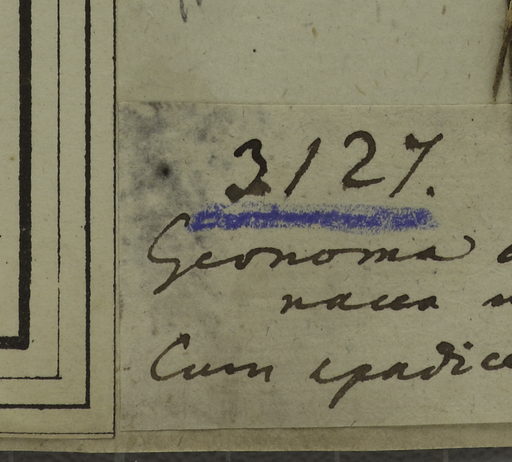 3127.
Geonoma
nacea
Cum spadice